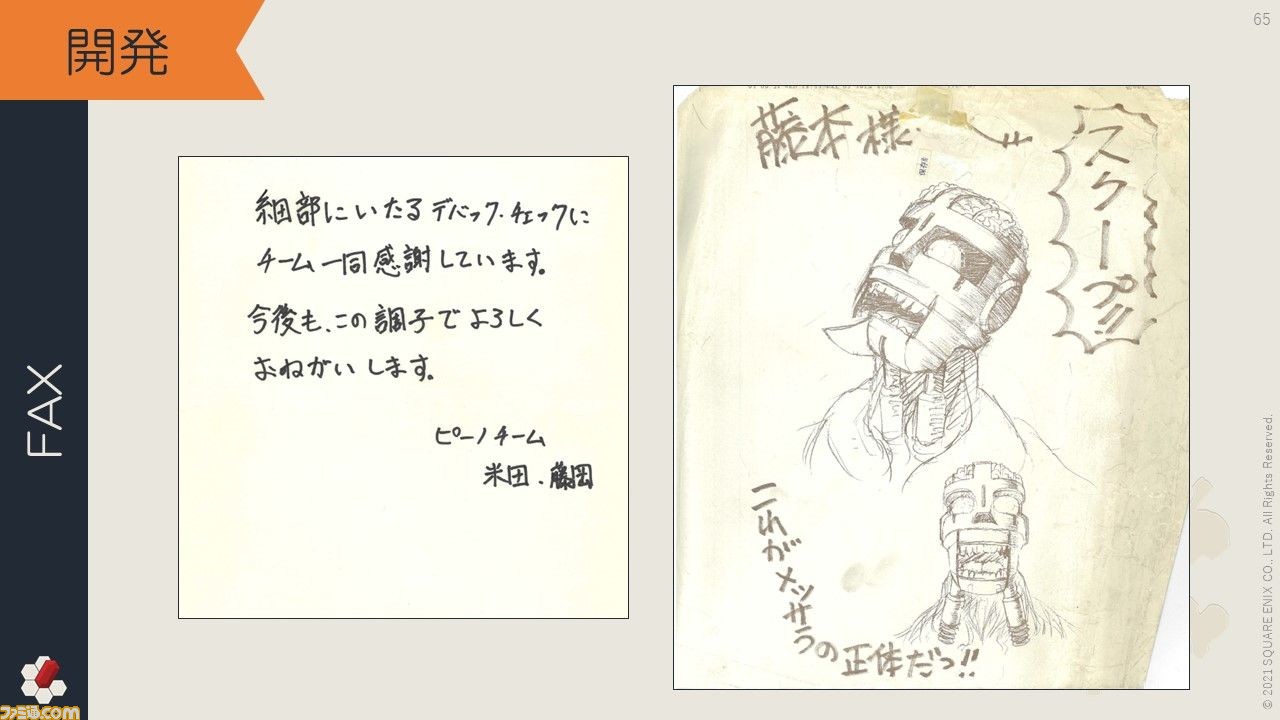 開発
65
FAX
細部にいたる デバック・チェックに
チーム一同 感謝しています。
今後も、この調子で よろしく
おねがいします。
ピーノチーム
米田・藤岡
藤本様
スクープ!!
これがメッサラの正体だっ!!
© 2021 SQUARE ENIX CO., LTD. All Rights Reserved.
ファミ通.com